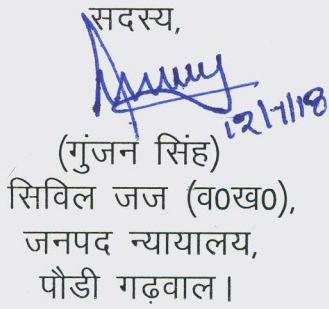 सदस्य,
12/7/18
(गुंजन सिंह)
सिविल जज (व0ख0),
जनपद न्यायालय,
पौडी गढ़वाल।